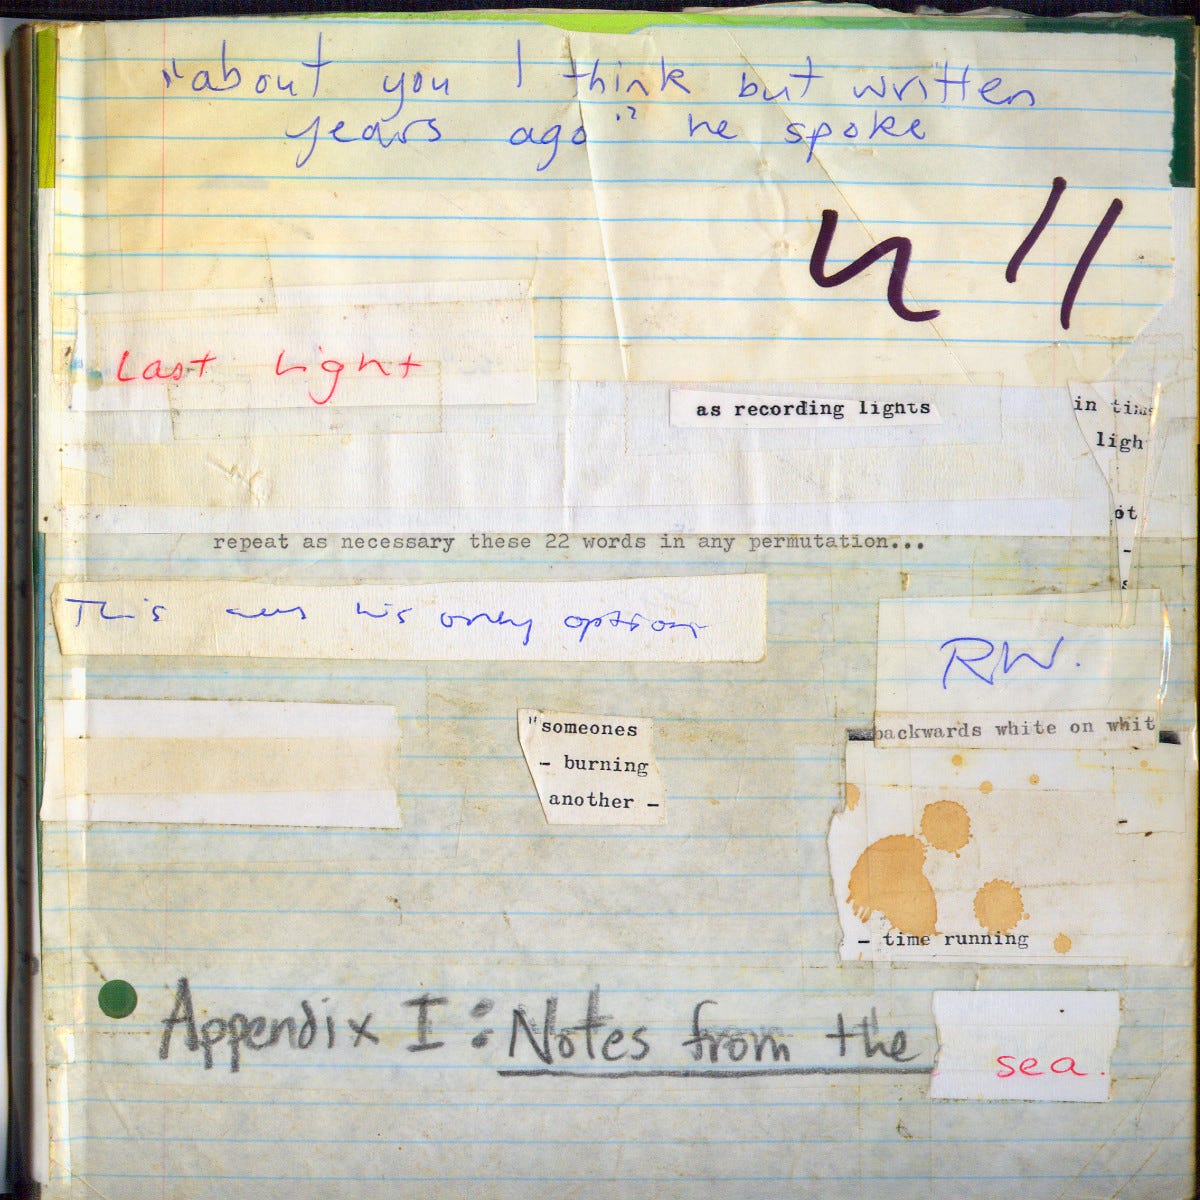 "about you I think but written
years ago" he spoke
Last Light
as recording lights
in
ligh
ot
repeat as necessary these 22 words in any permutation...
This was his only option
RW.
backwards white on whit
"someones
- burning
another -
- time running
Appendix I: Notes from the sea.